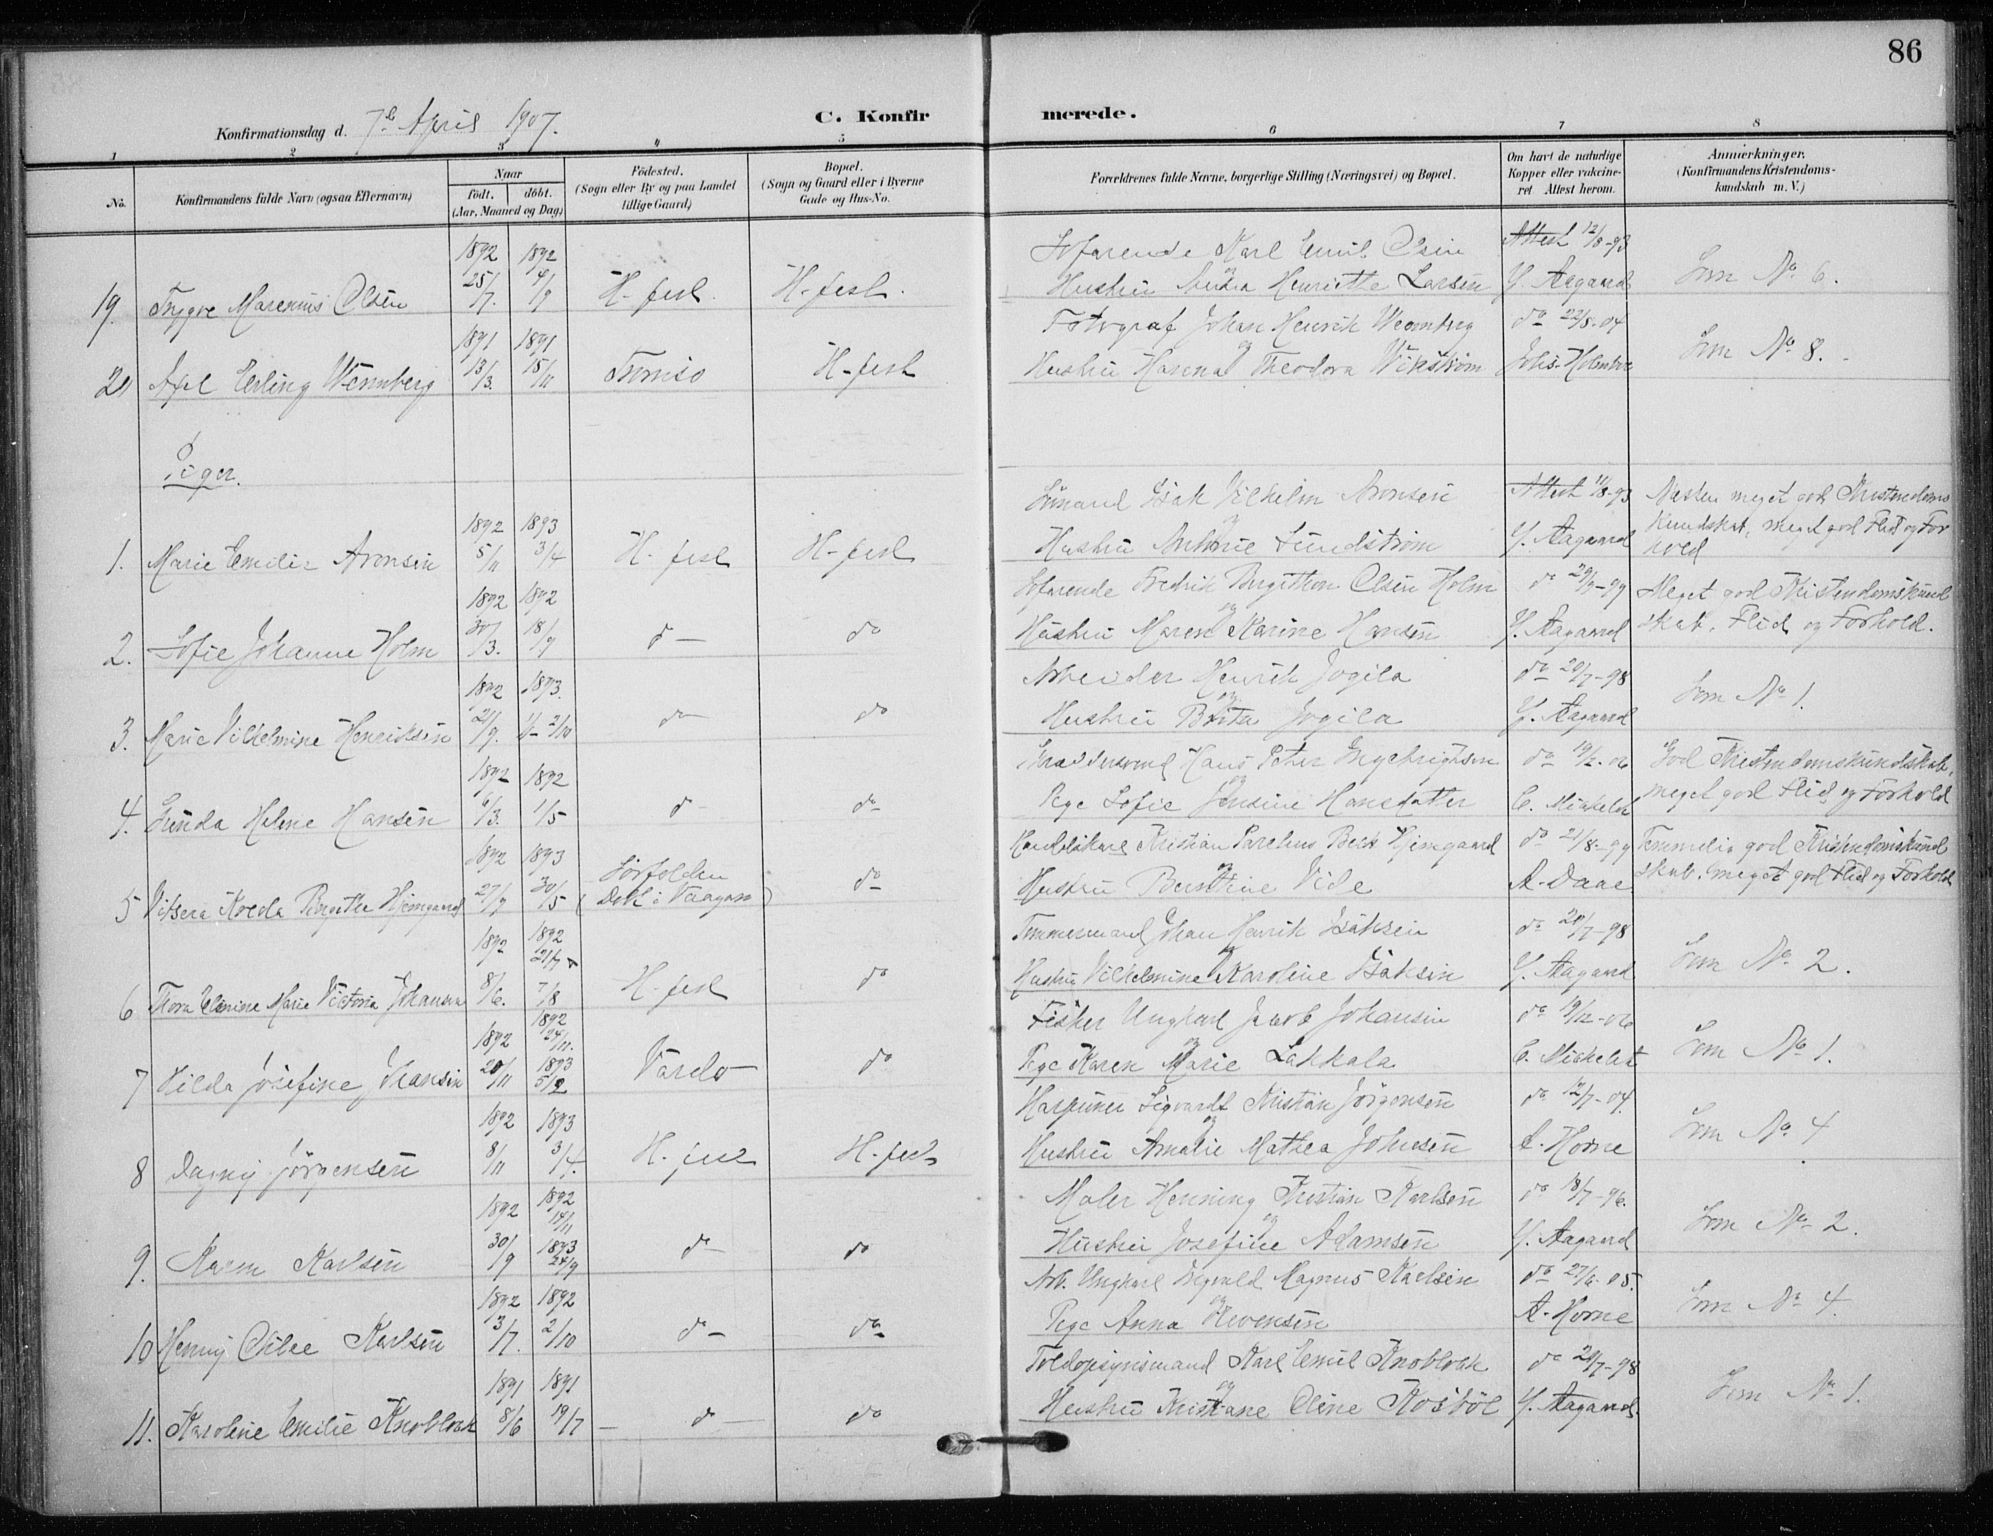 86
Konfirmationsdag d. 7de April 1907.
C. Konfirmerede.
1 2 3 4 5 6 7 8
No.
Konfirmandens fulde Navn (ogsaa Efternavn)
Naar
födt. döbt.
(Aar, Maaned og Dag)
Födested.
(Sogn eller By og paa Landet
tillige Gaard)
Bopæl.
(Sogn og Gaard eller i Byerne
Gade og Hus-No.
Forældrenes fulde Navne, borgerlige Stilling (Næringsvei) og Bopæl.
Om havt de naturlige
Kopper eller vakcine-
ret Attest herom.
Anmærkninger.
(Konfirmandens Kristendoms-
kundskab m. V.)
1892 1892 Söfarende Karl Emil Olsen Attest 12/8-93
19. Trygve Marenius Olsen 25/7. 4/9 H-fest. H-fest. og Hustru Andrea Henriette Larsen Y. Aagaard Som No 6.
1891 1891 Fotograf Johan Henrik Wennberg do 22/8-04
20 Axel Erling Wennberg 13/3. 15/11 Tromsö H-fest og Hustru Hanna Theodora Wikström Johs. Holmboe Som No 8.
Piger.
1892 1893 Isak Vilhelm Aronsen Attest 11/8-93 Næsten meget god Kristendoms
1. Marie Emilie Aronsen 5/11 3/4 H-fest H-fest og Hustru Antonie Sundström Y. Aagaard kundskab, meget god Flid og Forhold
1892 1892 Söfarende Fredrik Bergithon Olsen Holm do 29/9-99 Meget god Kristendomskund
2. Sofie Johanne Holm 30/3. 18/9 do do og Hustru Maren Karine Hansen Y. Aagaard skab, Flid og Forhold.
1892 1893. Arbeider Henrik Jogila do 20/7-98
3. Marie Vilhelmine Henriksen 21/9. 2/10 do do og Hustru Brita Jogila Y. Aagaard Som No 1.
1892 1892 Hans Peter Engebrigtsen do 19/2-06 God Kristendomskundskab,
4. Gunda Helene Hansen 6/3. 1/5 do do og Pige Sofie Jensine Hansdatter C. Mikkelst meget god Flid og Forhold
1892 1893 Sörfolden Kristian Parelius Beck Hjemgaard do 21/8-99 Temmelig god Kristendomskund
5 Hjemgaard 27/9 30/5 (Döbt i Vaagan) do og Hustru Berntine Vide A. Daae skab, meget god Flid og Forhold
1892 1892 21/7 Tømmermand Johan Henrik Isaksen do 20/7-98
6 Thora Elmine Marie Victoria Johansen 8/6. 7/8 H-fest do og Hustru Vilhelmine Karoline Isaksen Y. Aagaard Som No 2.
1892 1892 24/11. Fisker Ungkarl Jacob Johansen do 19/12-06
7 Hilda Josefine Hansen 20/11 1893 5/2 Vardö do og Pige Karen Marie Lakkala C. Mikkelst Som No 1.
1892 1893 Harpuner Sigvardt Kristian Jörgensen do 12/7-04.
8 Dagny Jörgensen 8/11 3/4. H-fest H-fest og Hustru Amalie Mathea Johnsen A. Horne Som No 4
1892 1892 14/11 Maler Henning Kristian Karlsen do 18/7-96.
9. Karen Karlsen 30/9 1893 24/9 do do og Hustru Josefine Adamsen Y. Aagaard Som No 2.
1892 1892 Arb. Ungkarl Ingvald Magnus Karlsen do 27/6-05.
10 Henny Otilie Karlsen 3/7. 2/10 do do og Pige Anna Evensen A. Horne Som No 4.
1891 1891 Toldopsynsmand Karl Emil Knoblock do 20/7-98
11. Karoline Emilie Knoblock 8/6 19/7 do do og Hustru Kristiane Oline Kosböl Y. Aagaard. Som No 1.